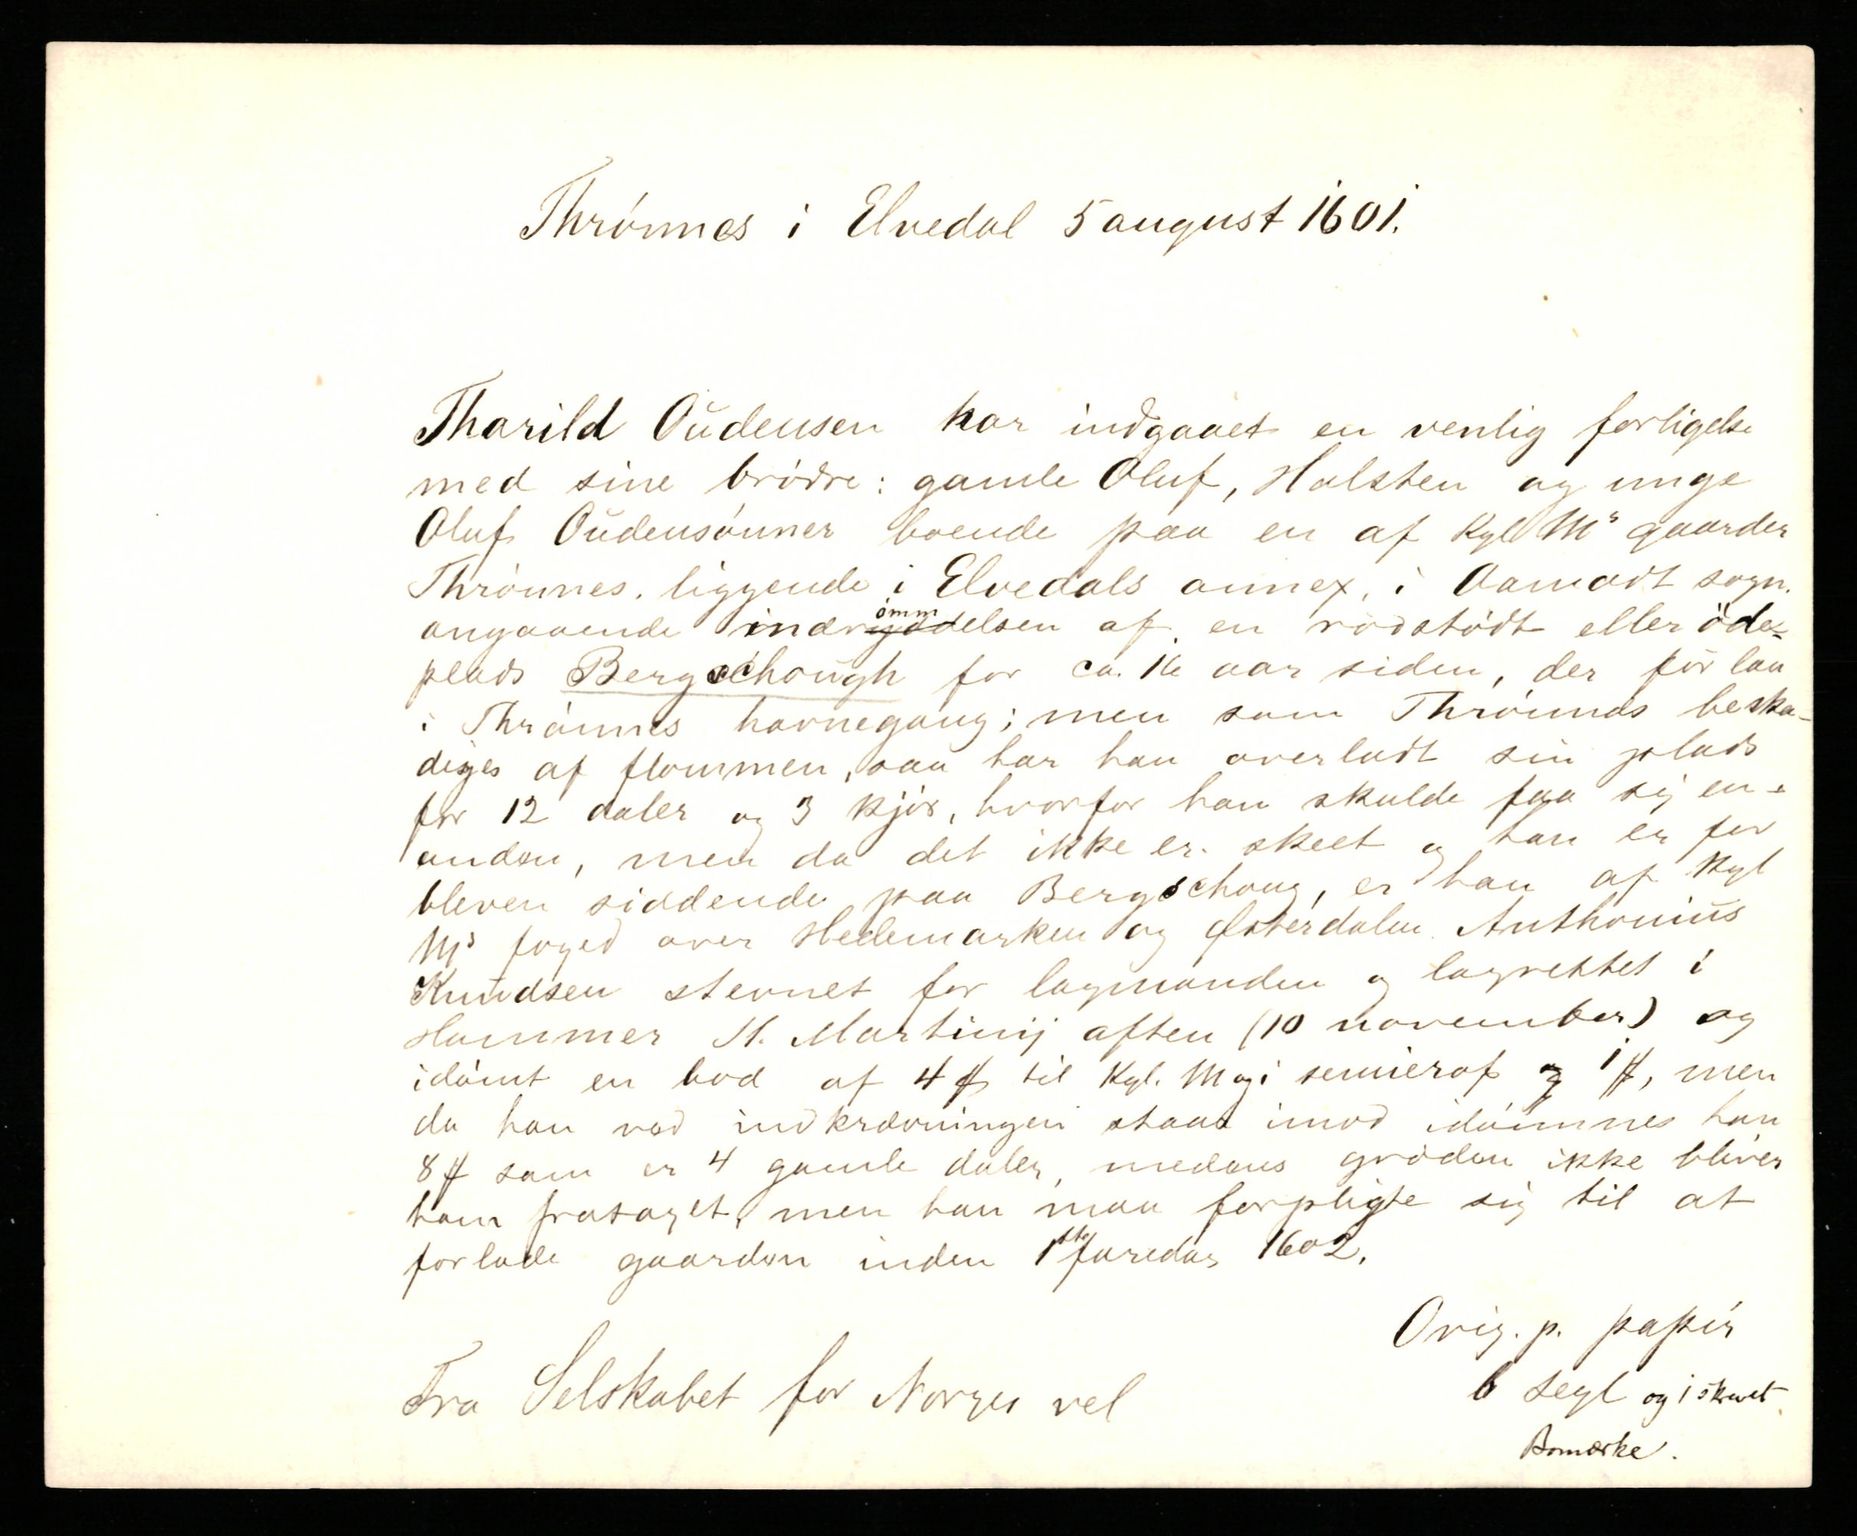 Thrónnes i Elvedal 5 august 1601.
Tharild Oŭdensen har indgaaet en venlig forligelse
med sine brødre: gamle Oluf, Halsten og unge
Oluf Oŭdensónner boende paa en af Kgl Ms gaarder
Thrónnes. liggende i Elvedals annex, i Aamodt sogn.
angaaende indrømmelsen af en rødstødt eller öde-
plads Bergschoŭgh for ca. 16 aar siden, der før laa
i Thrónnes havnegang; men som Thrónnes beska-
diges af flommen, saa har han overladt sin plads
for 12 daler og 3 kjör, hvorfor han skulde faa sig en
anden, men da det ikke er skeet og han er for
bleven siddende paa Bergschoug, er han af Kgl
Ms foged over Hedemarken og Østerdalen Anthoniŭs
Knŭdsen stevnet for lagmanden og lagrettet i
Hammer St. Martinij aften (10 november) og
idómt en bod af 4 ₰ til Kgl. Maj og 1 ₰, men
da han ved indkrævningen staar imod idómmes han
8 ₰ som er 4 gamle daler, medens gróden ikke bliver
ham frataget, men han maa forpligte sig til at
forlade gaarden inden 1ste faredag 1602.
Orig. p. papir
6 segl og 1 skrevet
Bomærke.
Fra Selskabet for Norges vel